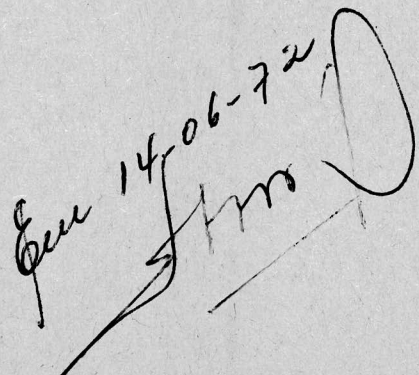 Em 14-06-72